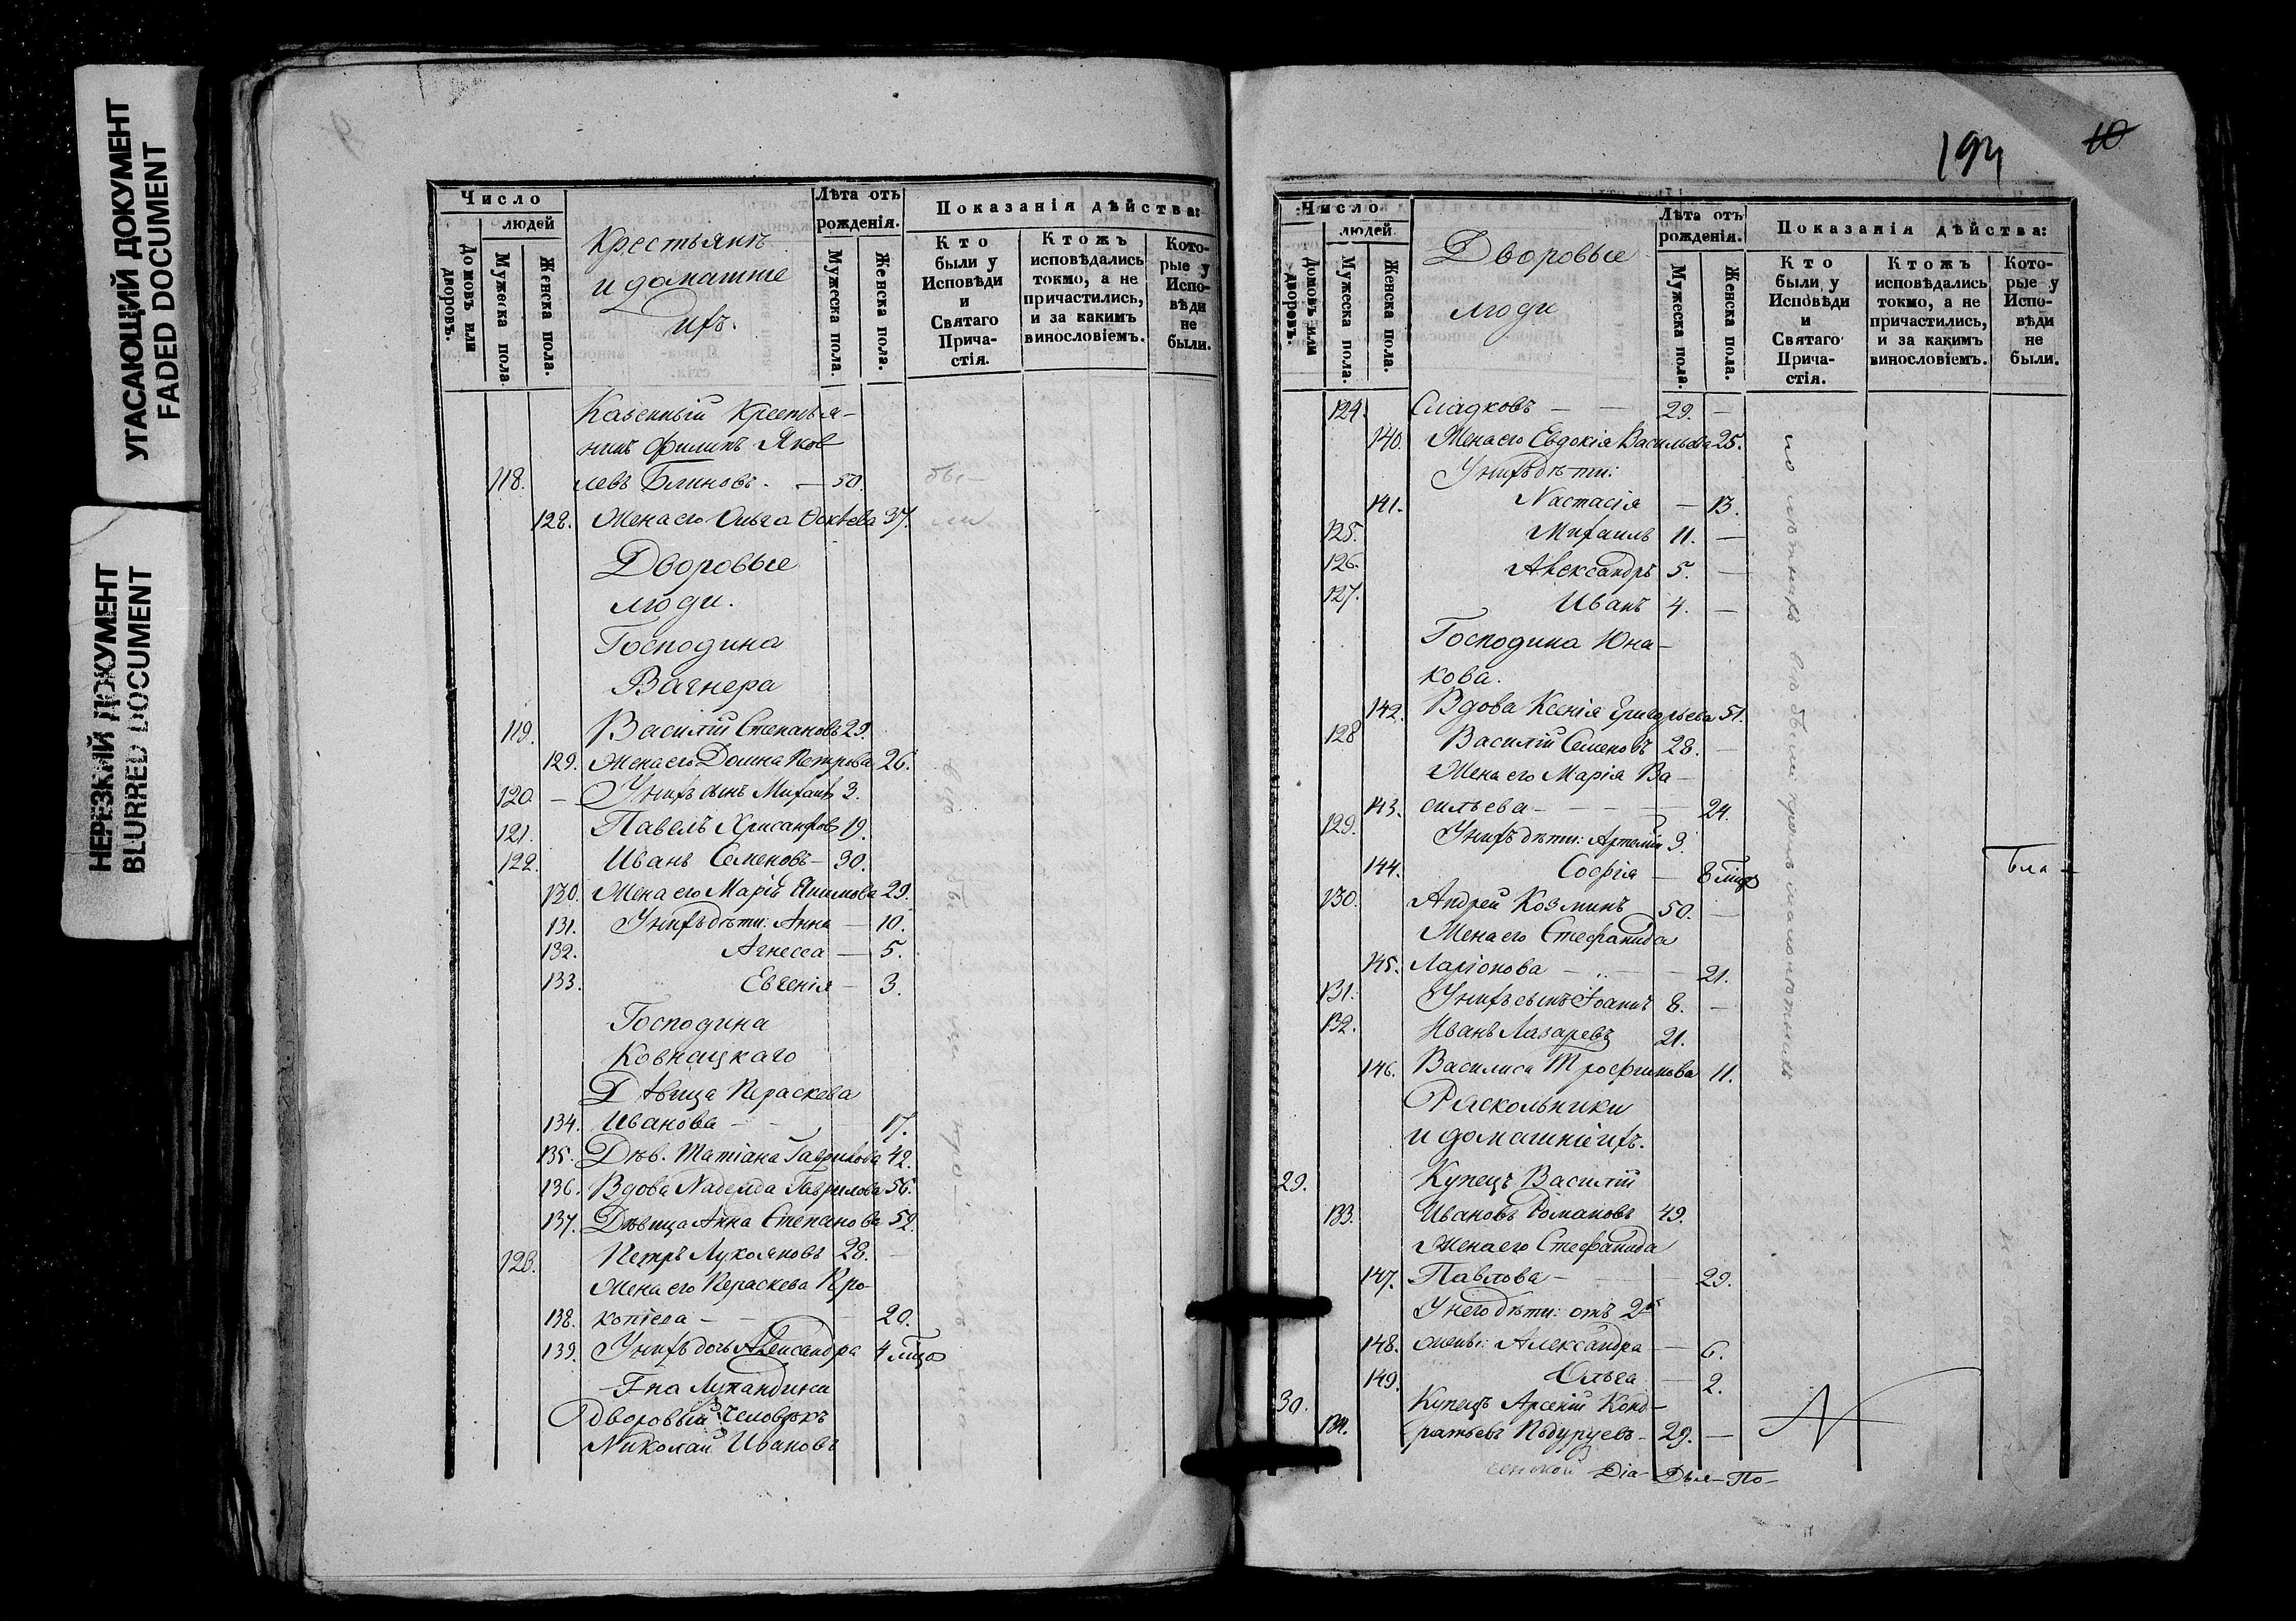 УГАСАЮЩИЙ ДОКУМЕНТ
FADED DOCUMENT
НЕРЕЗКИЙ ДОКУМЕНТ
BLURRED DOCUMENT
Число
людей
Домовъ или дворовъ.
Мужеска пола.
Женска пола.
Крестьянъ
и домашніе
ихъ.
Лѣта отъ рожденія.
Мужеска пола.
Женска пола.
Показанія дѣйства:
Кто были у Исповѣди и Святаго Причастія.
Ктожъ исповѣдались токмо, а не причастились, и за какимъ винословіемъ.
Которые у Исповѣди не были.
Казенный Крестья-
нинъ Филипъ Яков
118. левъ Блиновъ. — 50. бы-
128. Жена его Ольга 37. ли
Дворовые
люди.
Господина
Вагнера
119. Василій Степановъ 29.
129. Жена его Домна Петрова 26.
120. — У нихъ сынъ Михаилъ 3.
121. Павелъ Хрисанфовъ 19.
122. Иванъ Семеновъ — 30.
130. Жена его Марія Якимова 29.
131. У нихъ дѣти: Анна — 10.
132. Агнесса — 5.
133. Евгенія — 3.
Господина
Ковнацкаго
Дѣвица Параскева
134. Иванова — 17.
135. Дѣв. Татіана Гаврилова 42.
136. Вдова Надежда Гаврилова 56.
137. Дѣвица Анна Степанова 52.
123. Петръ Лукояновъ 28. —
Жена его Параскева Про-
138. копіева — 20.
139. У нихъ дочь Александра 4
Г-на Лупандина
Дворовый человѣкъ
Николай Ивановъ
194 10
Число
людей
Домовъ или дворовъ.
Мужеска пола.
Женска пола.
Дворовые
люди
Лѣта отъ рожденія.
Мужеска пола.
Женска пола.
Показанія дѣйства:
Кто были у Исповѣди и Святаго Причастія.
Ктожъ исповѣдались токмо, а не причастились, и за какимъ винословіемъ.
Которые у Исповѣди не были.
124. Сладковъ — — 29. —
140. Жена его Евдокія Васильева 25.
У нихъ дѣти:
141. Настасія — 13.
125. Михаилъ 11. —
126. Александръ 5. —
127. Иванъ 4. —
Господина Юна-
кова.
142. Вдова Ксенія Григорьева 51.
128 Василій Семеновъ 28. —
Жена его Марія Ва-
143. сильева — — — 24.
129. У нихъ дѣти: Артемій 3.
144. Софія — 8
130. Андрей Козминъ 50. —
Жена его Стефанида
145. Ларіонова — — 21.
131. У нихъ сынъ Іоаннъ 8. —
132. Иванъ Лазаревъ 21.
146. Василиса Трофимова 11.
Раскольники
и домашніе ихъ.
29. Купецъ Василій
133. Ивановъ Романовъ 49.
Жена его Стефанида
147. Павлова — 29.
У него дѣти: отъ 2й
148. жены: Александра — 6.
149. Ольга — 2.
30. Купецъ Арсеній Конд-
134. ратьевъ 29. —
Діа- По-